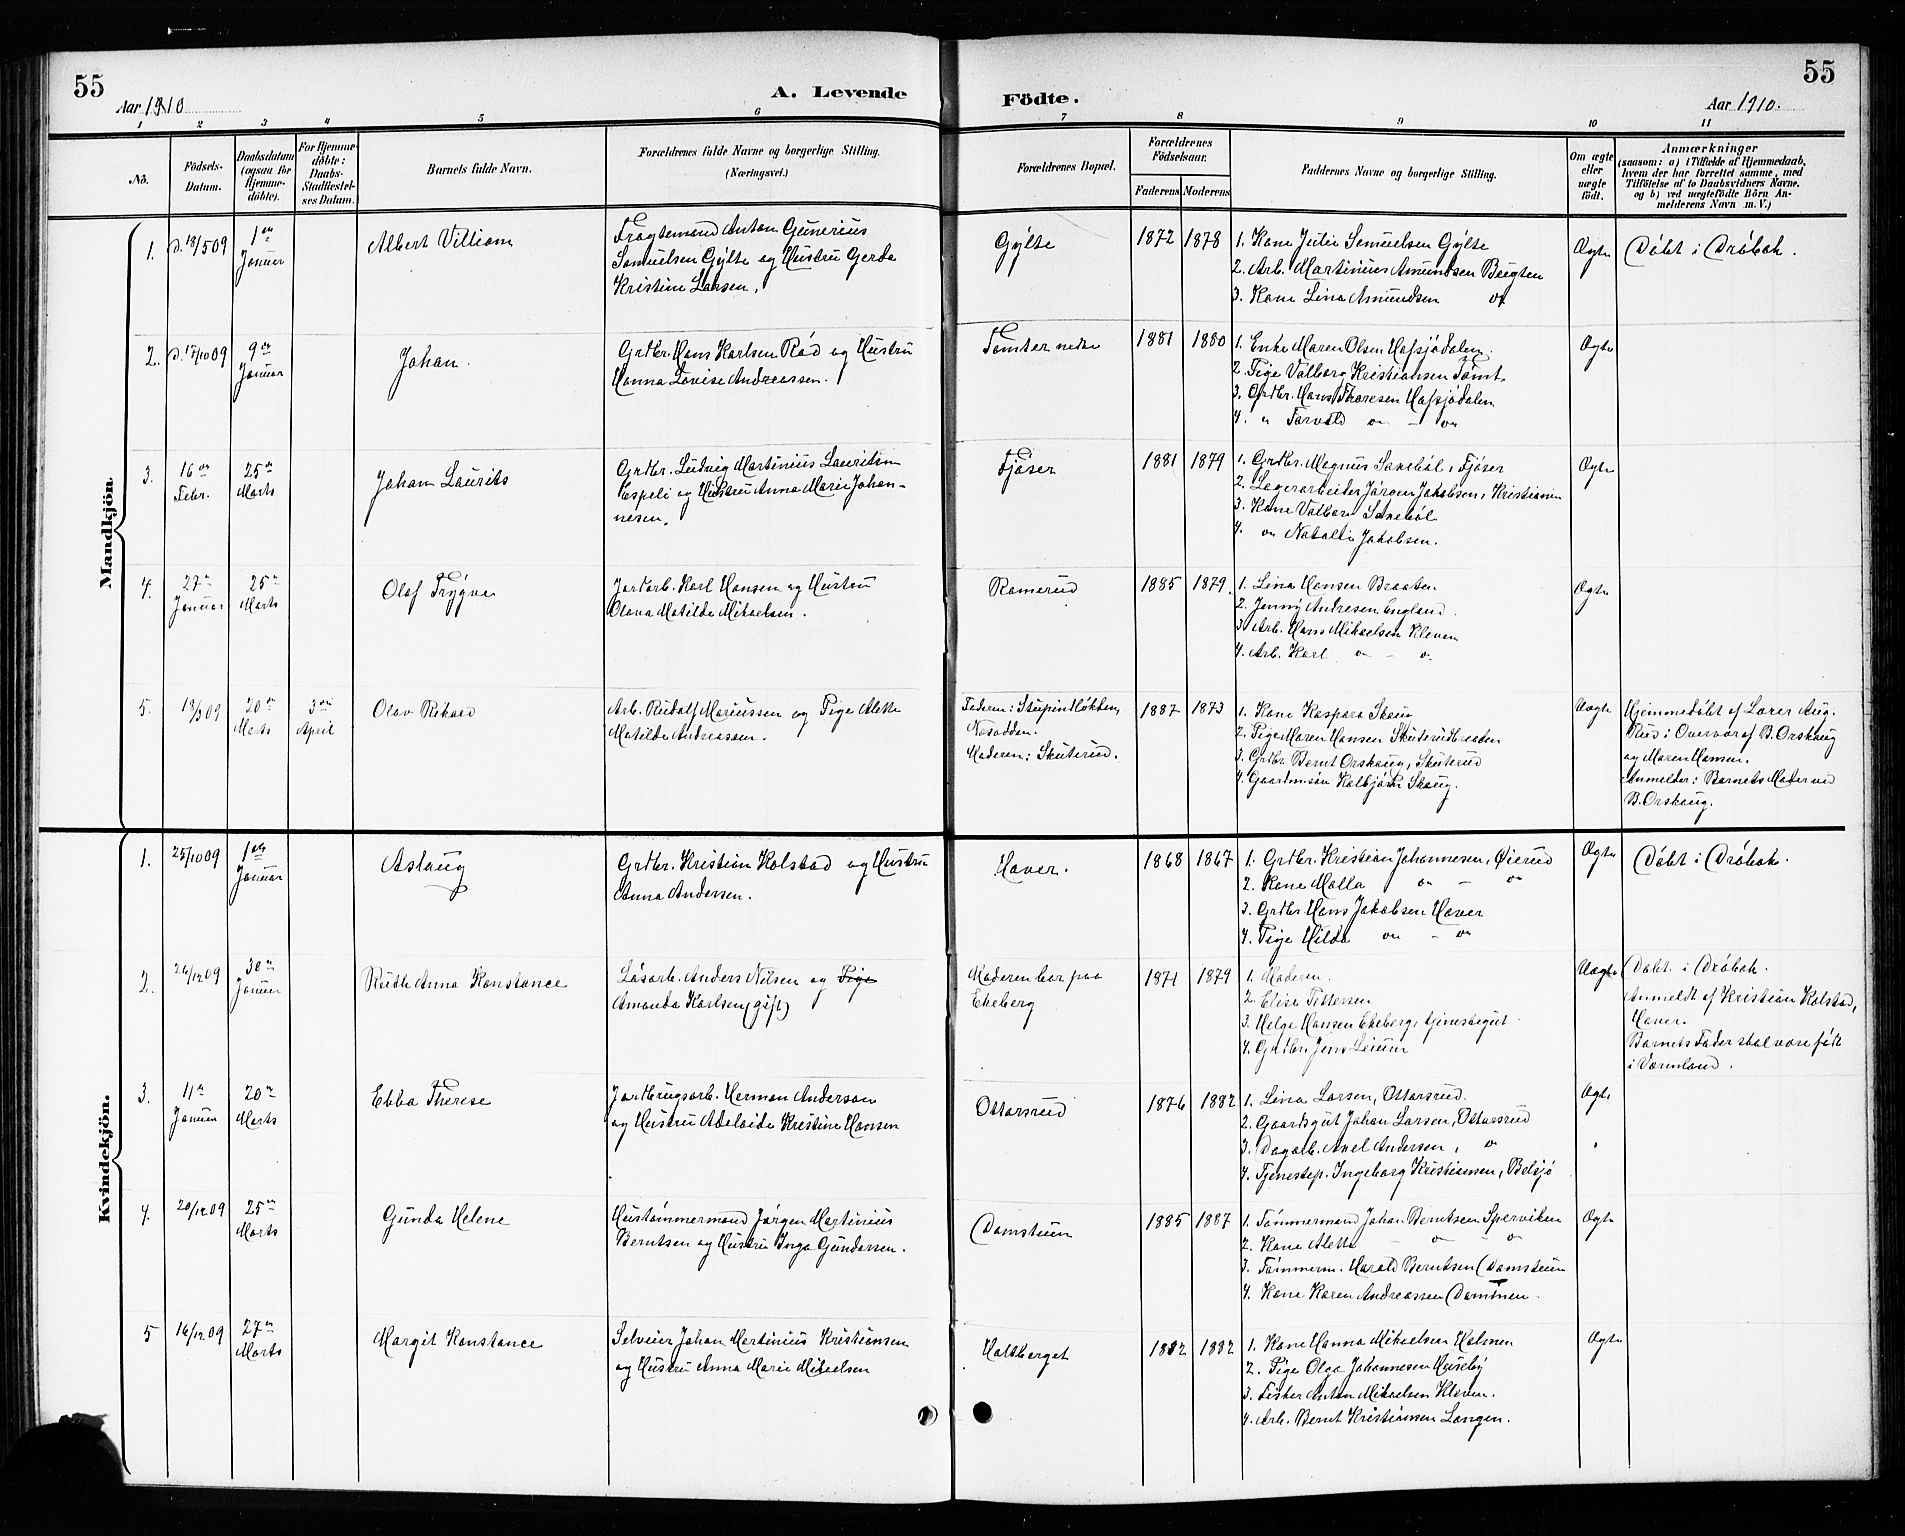 55
Aar 1910
A. Levende
Födte.
Aar 1910.
55
1 2 3 4 5 6 7 8 9 10 11
No.
Födsels-
Datum.
Daabsdatum
(ogsaa for
Hjemme-
döbte).
For Hjemme-
döbte:
Daabs-
Stadfæstel-
ses Datum.
Barnets fulde Navn.
Forældrenes fulde Navne og borgerlige Stilling.
(Næringsvei.)
Forældrenes Bopæl.
Forældrenes
Födselsaar.
Faderens Moderens
Faddernes Navne og borgerlige Stilling.
Om ægte
eller
uægte
födt.
Anmærkninger
(saasom: a) i Tilfælde af Hjemmedaab,
hvem der har forrettet samme, med
Tilföielse af to Daabsvidners Navne.
og b) ved uægtefödte Börn An-
melderens Navn m. V.)
Mandkjön
1. d. 18/5 09
1ste
Januar
Albert Villiam
Fragtemand Anton Gunerius
Samuelsen Gylte og Hustru Gerda
Kristine Larsen.
Gylte
1872 1878
1. Kone Julie Samuelsen Gylte
2. Arb. Martinius Amundsen
3. Kone Lina Amundsen
Ægte
Döbt i Dröbak.
2. d. 17/10 09
9de
Januar
Johan.
Grdbr. Hans Karlsen Röd og Hustru
Hanna Lovise Andreassen.
Tomter nedre
1881 1880
1. Enke Maren Olsen Hafsjödalen.
2. Pige Valborg Kristiansen Tomt.
3. Grdbr. Hans Thoresen Hafsjödalen
4. " Torvald " - "
Ægte
3. 16de
Febr.
25de
Marts
Johan Laurits
Grdbr. Ludvig Martinius Lauritsen
Espeli og Hustru Anna Marie Johan-
nesen.
Fjöser
1881 1879
1. Grdbr. Magnus Saneböl, Fjöser
2. Lagerarbeider Jörgen Jakobsen, Kristiania
3. Kone Valborg Saneböl
4. " Natalli Jakobsen.
Ægte
4. 27de
Januar
25de
Marts
Olaf Trygve
Jordarb. Karl Hansen og Hustru
Olava Matilde Mikaelsen.
Ramerud
1885 1879.
1. Lina Hansen Braaten
2. Jenny Andresen England
3. Arb. Hans Mikaelsen Kleven
4. Arb. Karl " - "
Ægte
5. 18/3 09
20de
Marts
3die
April
Olav Rikard
Arb. Rudolf Mariussen og Pige Alette
Matilde Andreassen.
Faderen: Stupindlökken,
Nesodden.
Moderen: Skuterud.
1887 1873
1. Kone Kaspara Skaug
2. Pige Maren Hansen Skuterudbraaten
3. Grdbr Bernt Orskaug, Skuterud
4. Gaardmsön Kolbjörn Skaug.
Uægte
Hjemmedöbt af Lærer Aug.
Rud i Overvær af B. Orskaug
og Maren Hansen.
Anmelder: Barnets Moder ved
B. Orskaug.
Kvindekjön.
1. 25/10 09
1ste
Januar
Aslaug
Grdbr. Kristian Kolstad og Hustru
Anna Andersen.
Haver.
1868 1867
1. Grdbr. Kristian Johannesen, Øierud
2. Kone Malla " - "
3. Grdbr Hans Jakobsen Haver
4. Pige Hilda " - "
Ægte
Döbt i Dröbak.
2. 26/12 09
30te
Januar
Ruth Anna Konstance
Lösarb. Anders Nilsen og Pige
Amanda Karlsen (gift)
Moderen bor paa
Ekeberg
1871 1879
1. Moderen.
2. Elise Pettersen
3. Helge Hansen Ekeberg, tjenestegut.
4. Grdbr. Jens Leium
Uægte
Döbt i Dröbak.
Anmeldt af Kristian Kolstad,
Haver.
Barnets Fader skal være födt
i Värmland.
3. 11te
Januar
20de
Marts
Ebba Therese
Jordbrugsarb. Herman Anderson
og Hustru Adelaide Kristine Hansen
Ottarsrud
1876 1882
1. Lina Larsen, Ottarsrud.
2. Gaardsgut Johan Larsen, Ottarsrud
3. Dagarb. Axel Andersen, "
4. Tjenestep. Ingeborg Kristiansen, Belsjö
Ægte
4. 20/12 09
25de
Marts
Gunda Helene
Hustömmermand Jörgen Martinius
Berntsen og Hustru Inga Gundersen.
Damstuen
1885 1887
1. Tömmermand Johan Berntsen Sperviken
2. Kone Alette - " - "
3. Tömmerm. Harald Berntsen Damstuen
4. Kone Karen Andreassen Dammen.
Ægte
5 16/12 09
27de
Marts
Margit Konstance
Selveier Johan Martinius Kristiansen
og Hustru Anna Marie Mikaelsen
Holtberget
1882 1882
1. Kone Hanna Mikaelsen Holmen
2. Pige Olga Johannesen Huseby
3. Fisker Anton Mikaelsen Kleven.
4. Arb. Bernt Kristiansen Langen.
Ægte